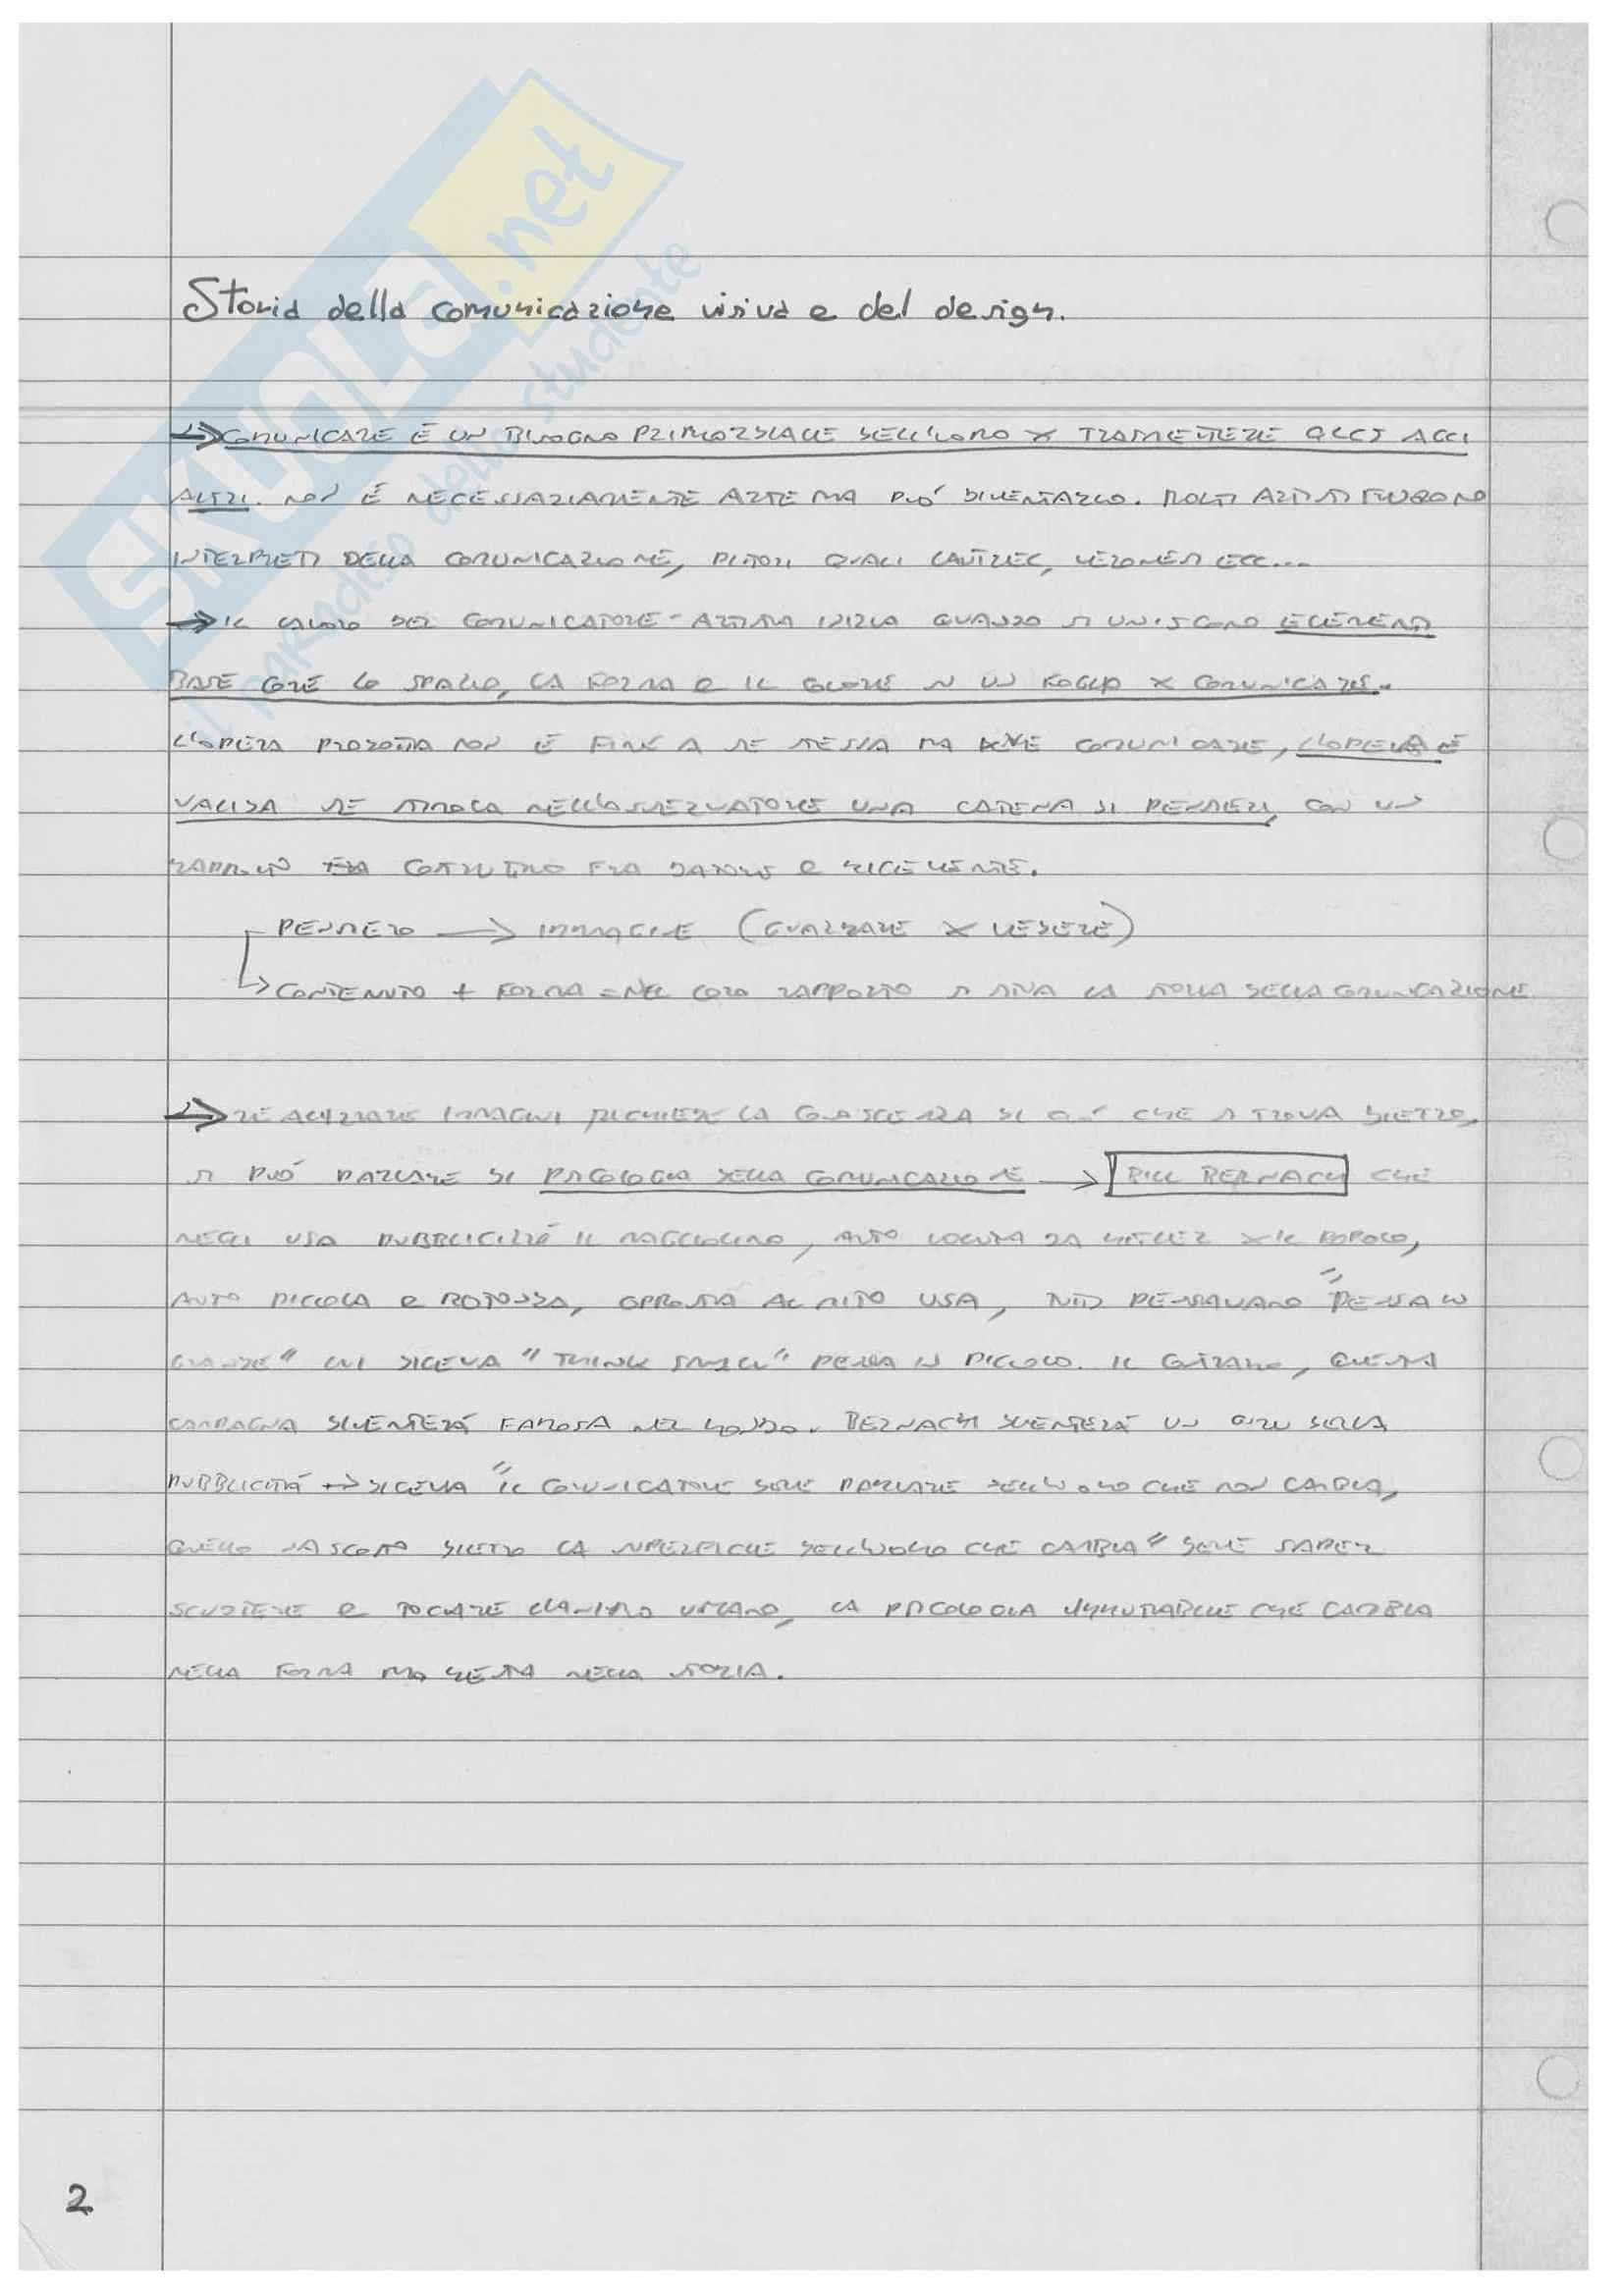 SKUOLA.net
il paradiso dello studente
Storia della comunicazione visiva e del design.
→ COMUNICARE È UN BISOGNO PRIMORDIALE DELL'UOMO X TRASMETTERE QLCS AGLI
ALTRI. NON È NECESSARIAMENTE ARTE MA PUÒ DIVENTARLO. MOLTI ARTISTI FURONO
INTERPRETI DELLA COMUNICAZIONE, PITTORI QUALI LAUTREC, VERONESI ECC...
→ IL LAVORO DEL COMUNICATORE-ARTISTA INIZIA QUANDO SI UNISCONO ELEMENTI
BASE COME LO SPAZIO, LA FORMA E IL COLORE IN UN FOGLIO X COMUNICARE.
L'OPERA PRODOTTA NON È FINE A SE STESSA MA DEVE COMUNICARE, L'OPERA È
VALIDA SE STIMOLA NELL'OSSERVATORE UNA CATENA DI PENSIERI, CON UN
RAPPORTO COSTRUTTIVO FRA DATORE E RICEVENTE.
PENSIERO → IMMAGINE (GUARDARE X VEDERE)
↳ CONTENUTO + FORMA = NEL LORO RAPPORTO SI STA LA STORIA DELLA COMUNICAZIONE.
→ REALIZZARE IMMAGINI RICHIEDE LA CONOSCENZA DI CIÒ CHE SI TROVA DIETRO,
SI PUÒ PARLARE DI PSICOLOGIA DELLA COMUNICAZIONE → BILL BERNACH CHE
NEGLI USA PUBBLICIZZÒ IL MAGGIOLINO, AUTO VOLUTA DA HITLER X IL POPOLO,
AUTO PICCOLA E ROTONDA, OPPOSTA AL MITO USA, TUTTI PENSAVANO "PENSA IN
GRANDE" LUI DICEVA "THINK SMALL" PENSA IN PICCOLO. IL CONTRARIO, QUESTA
CAMPAGNA DIVENTERÀ FAMOSA NEL MONDO. BERNACH DIVENTERÀ UN GURU DELLA
PUBBLICITÀ → DICEVA "IL COMUNICATORE DEVE PARLARE DELL'UOMO CHE NON CAMBIA,
QUELLO NASCOSTO DIETRO LA SUPERFICIE DELL'UOMO CHE CAMBIA" DEVE SAPER
SCUOTERE E TOCCARE L'ANIMO UMANO, LA PSICOLOGIA IMMUTABILE CHE CAMBIA
NELLA FORMA MA RESTA NELLA STORIA.
2